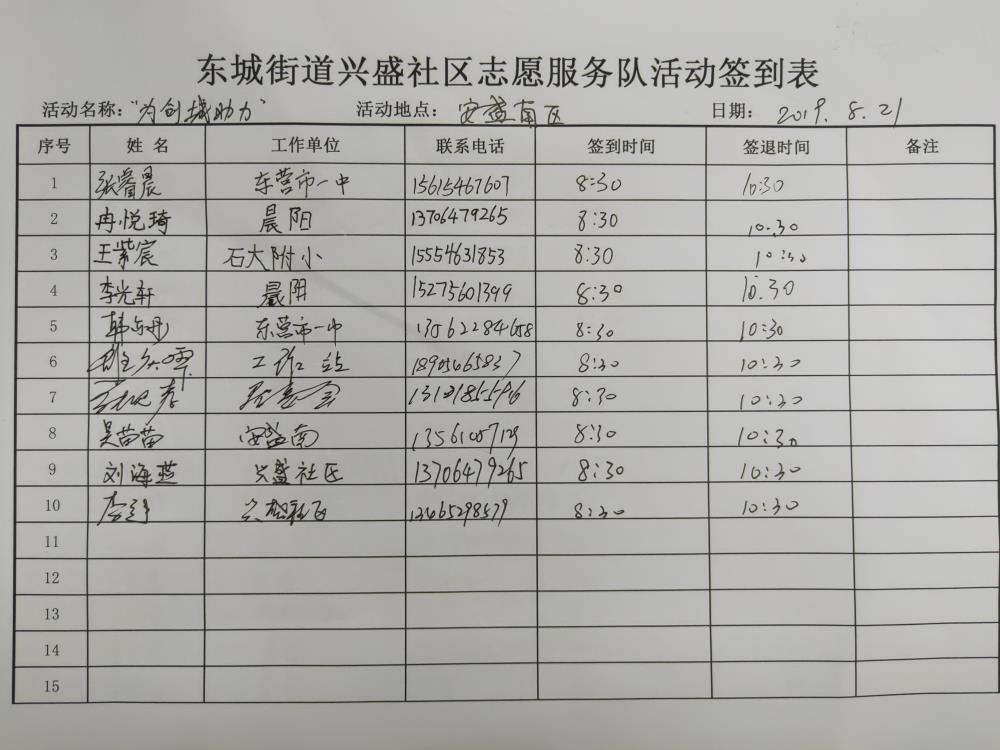 东城街道兴盛社区志愿服务队活动签到表
活动名称：“为创城助力” 活动地点： 安盛南区 日期： 2019.8.21
序号 姓名 工作单位 联系电话 签到时间 签退时间 备注
1 张睿晨 东营市一中 15615467607 8:30 10:30
2 冉悦琦 晨阳 13706479265 8:30 10:30
3 王紫宸 石大附小 15554631853 8:30 10:30
4 李光轩 晨阳 15275601399 8:30 10:30
5 东营市一中 13562284658 8:30 10:30
6 工作站 8:30 10:30
7 8:30 10:30
8 吴苗苗 安盛南 8:30 10:30
9 刘海燕 兴盛社区 13706479265 8:30 10:30
10 兴盛社区 13465298579 8:30 10:30
11
12
13
14
15